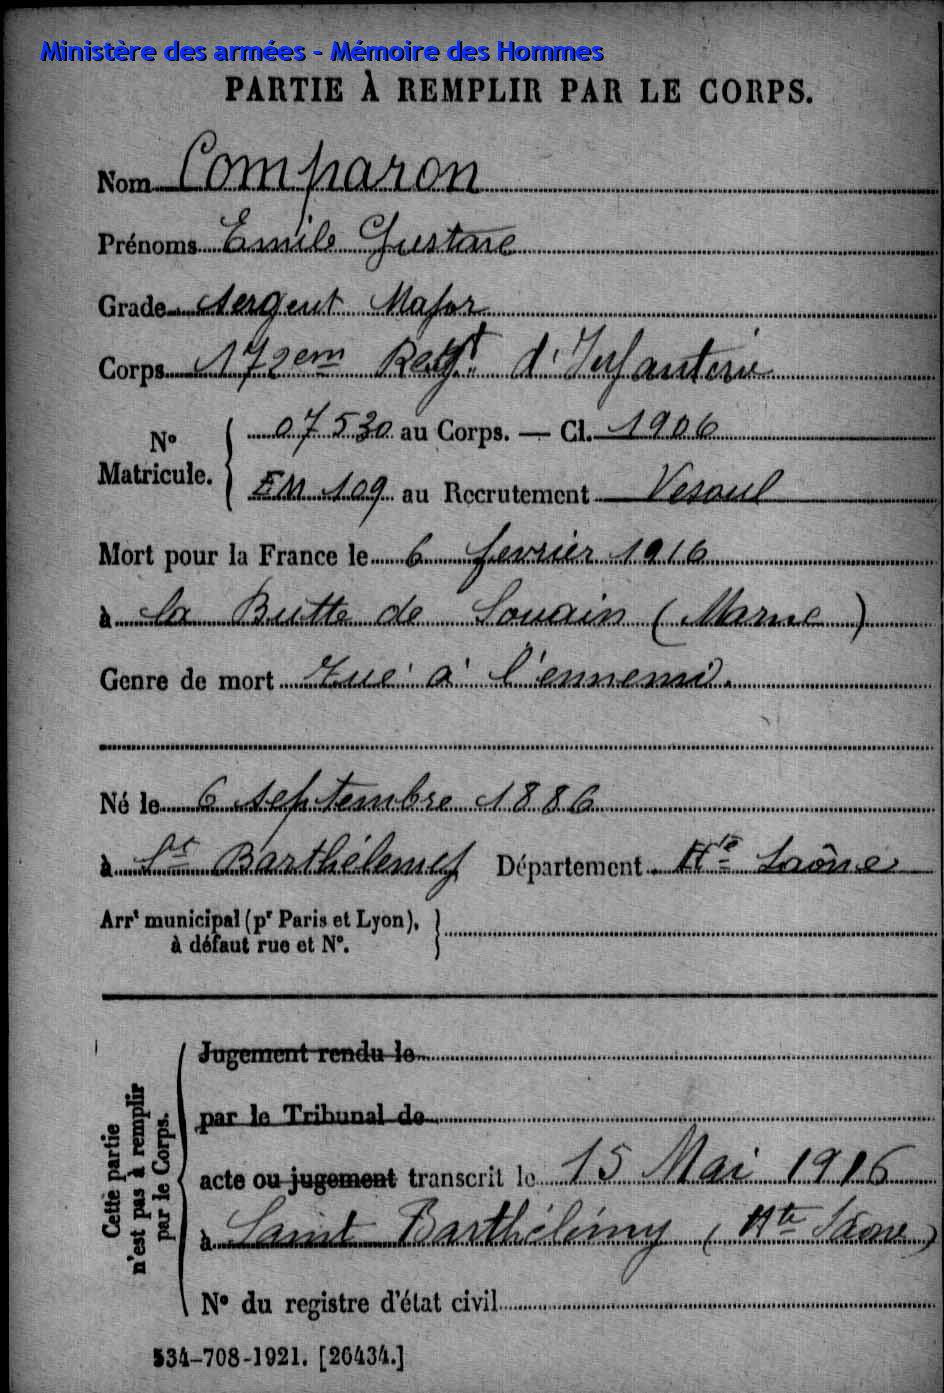 Ministère des armées - Mémoire des Hommes
PARTIE À REMPLIR PAR LE CORPS.
Nom Comparon
Prénoms Emile Gustave
Grade Sergent Major
Corps 172em Regt d'Infanterie
N° Matricule. 07530 au Corps. — Cl. 1906
EM 109 au Recrutement Vesoul
Mort pour la France le 6 fevrier 1916
à la Butte de Souain (Marne)
Genre de mort Tué à l'ennemi.
Né le 6 septembre 1886
à St Barthélemy Département Hte Saône
Arrt municipal (pr Paris et Lyon),
à défaut rue et N°.
Cette partie
n'est pas à remplir
par le Corps.
Jugement rendu le
par le Tribunal de
acte ou jugement transcrit le 15 Mai 1916
à Saint Barthélémy (Hte Saone)
N° du registre d'état civil
534-708-1921. [26434.]